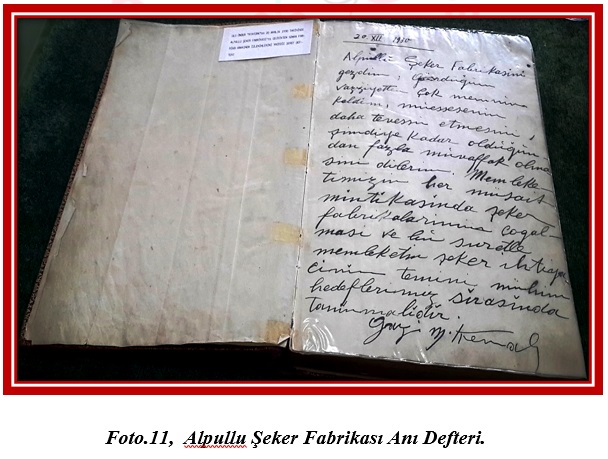 20 XII 1930
Alpullu Şeker Fabrikasını
gezdim; Gördüğüm
vaziyetten çok memnun
kaldım, müessesenin
daha tevessü etmesini,
şimdiye kadar olduğun
dan fazla muvaffak olma
sını dilerim. Memleke
timizin her müsait
mıntıkasında şeker
fabrikalarının çoğal-
ması ve bu suretle
memleketin şeker ihtiya
cının temini mühim
hedeflerimiz sırasında
tanınmalıdır.
Gazi M. Kemal
Foto.11, Alpullu Şeker Fabrikası Anı Defteri.